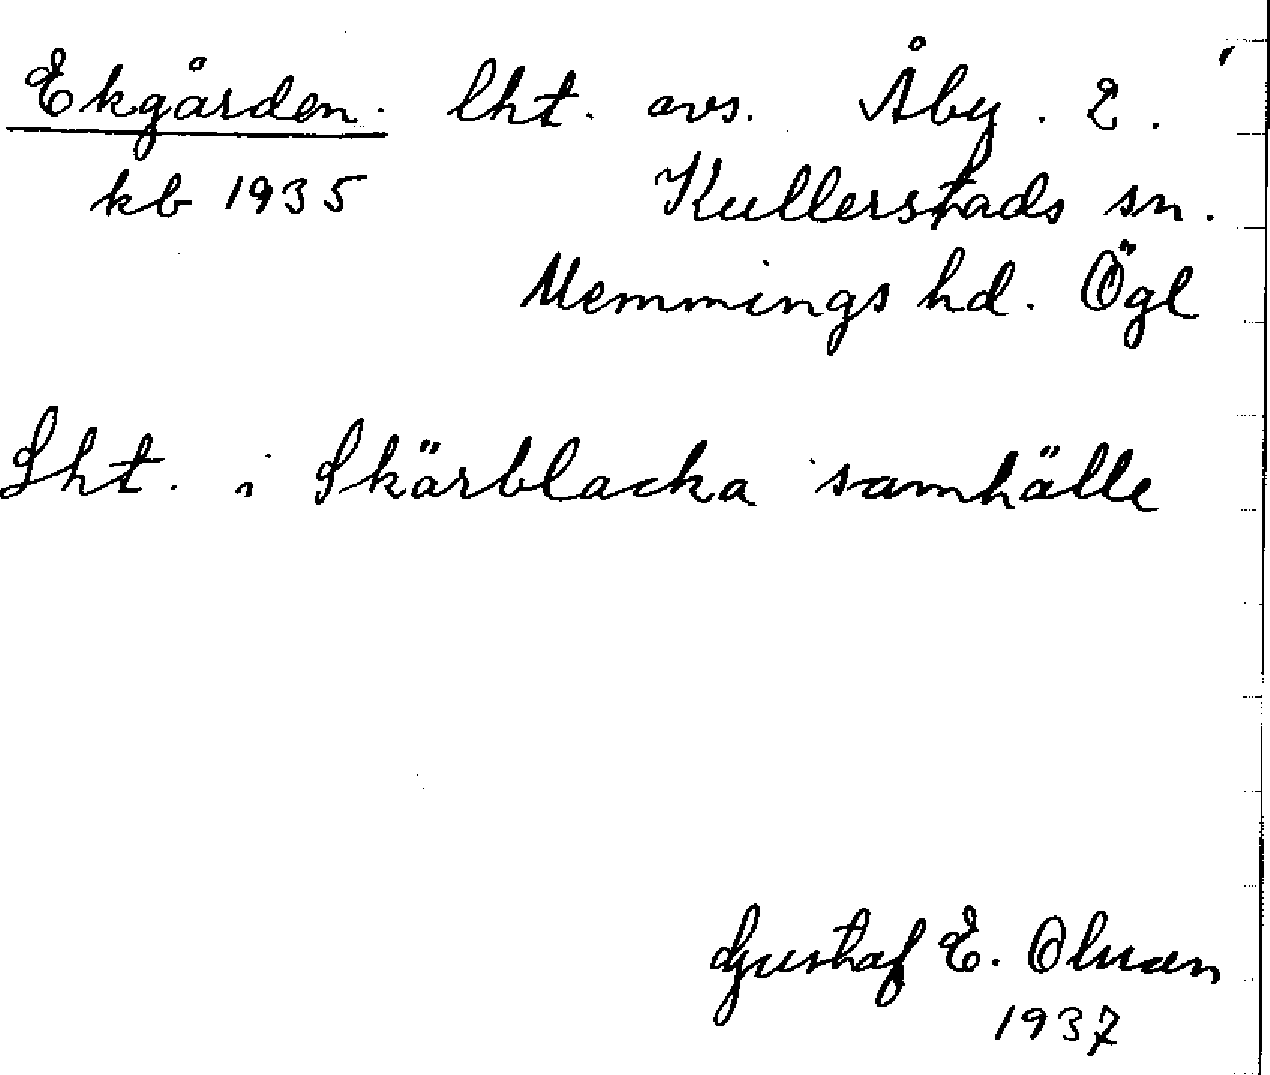 Ekgården. lht. avs. Åby. 2.
kb 1935 Kullerstads sn.
Memmings hd. Ögl
Lht. i Skärblacka samhälle
Gustaf E. Olman
1937